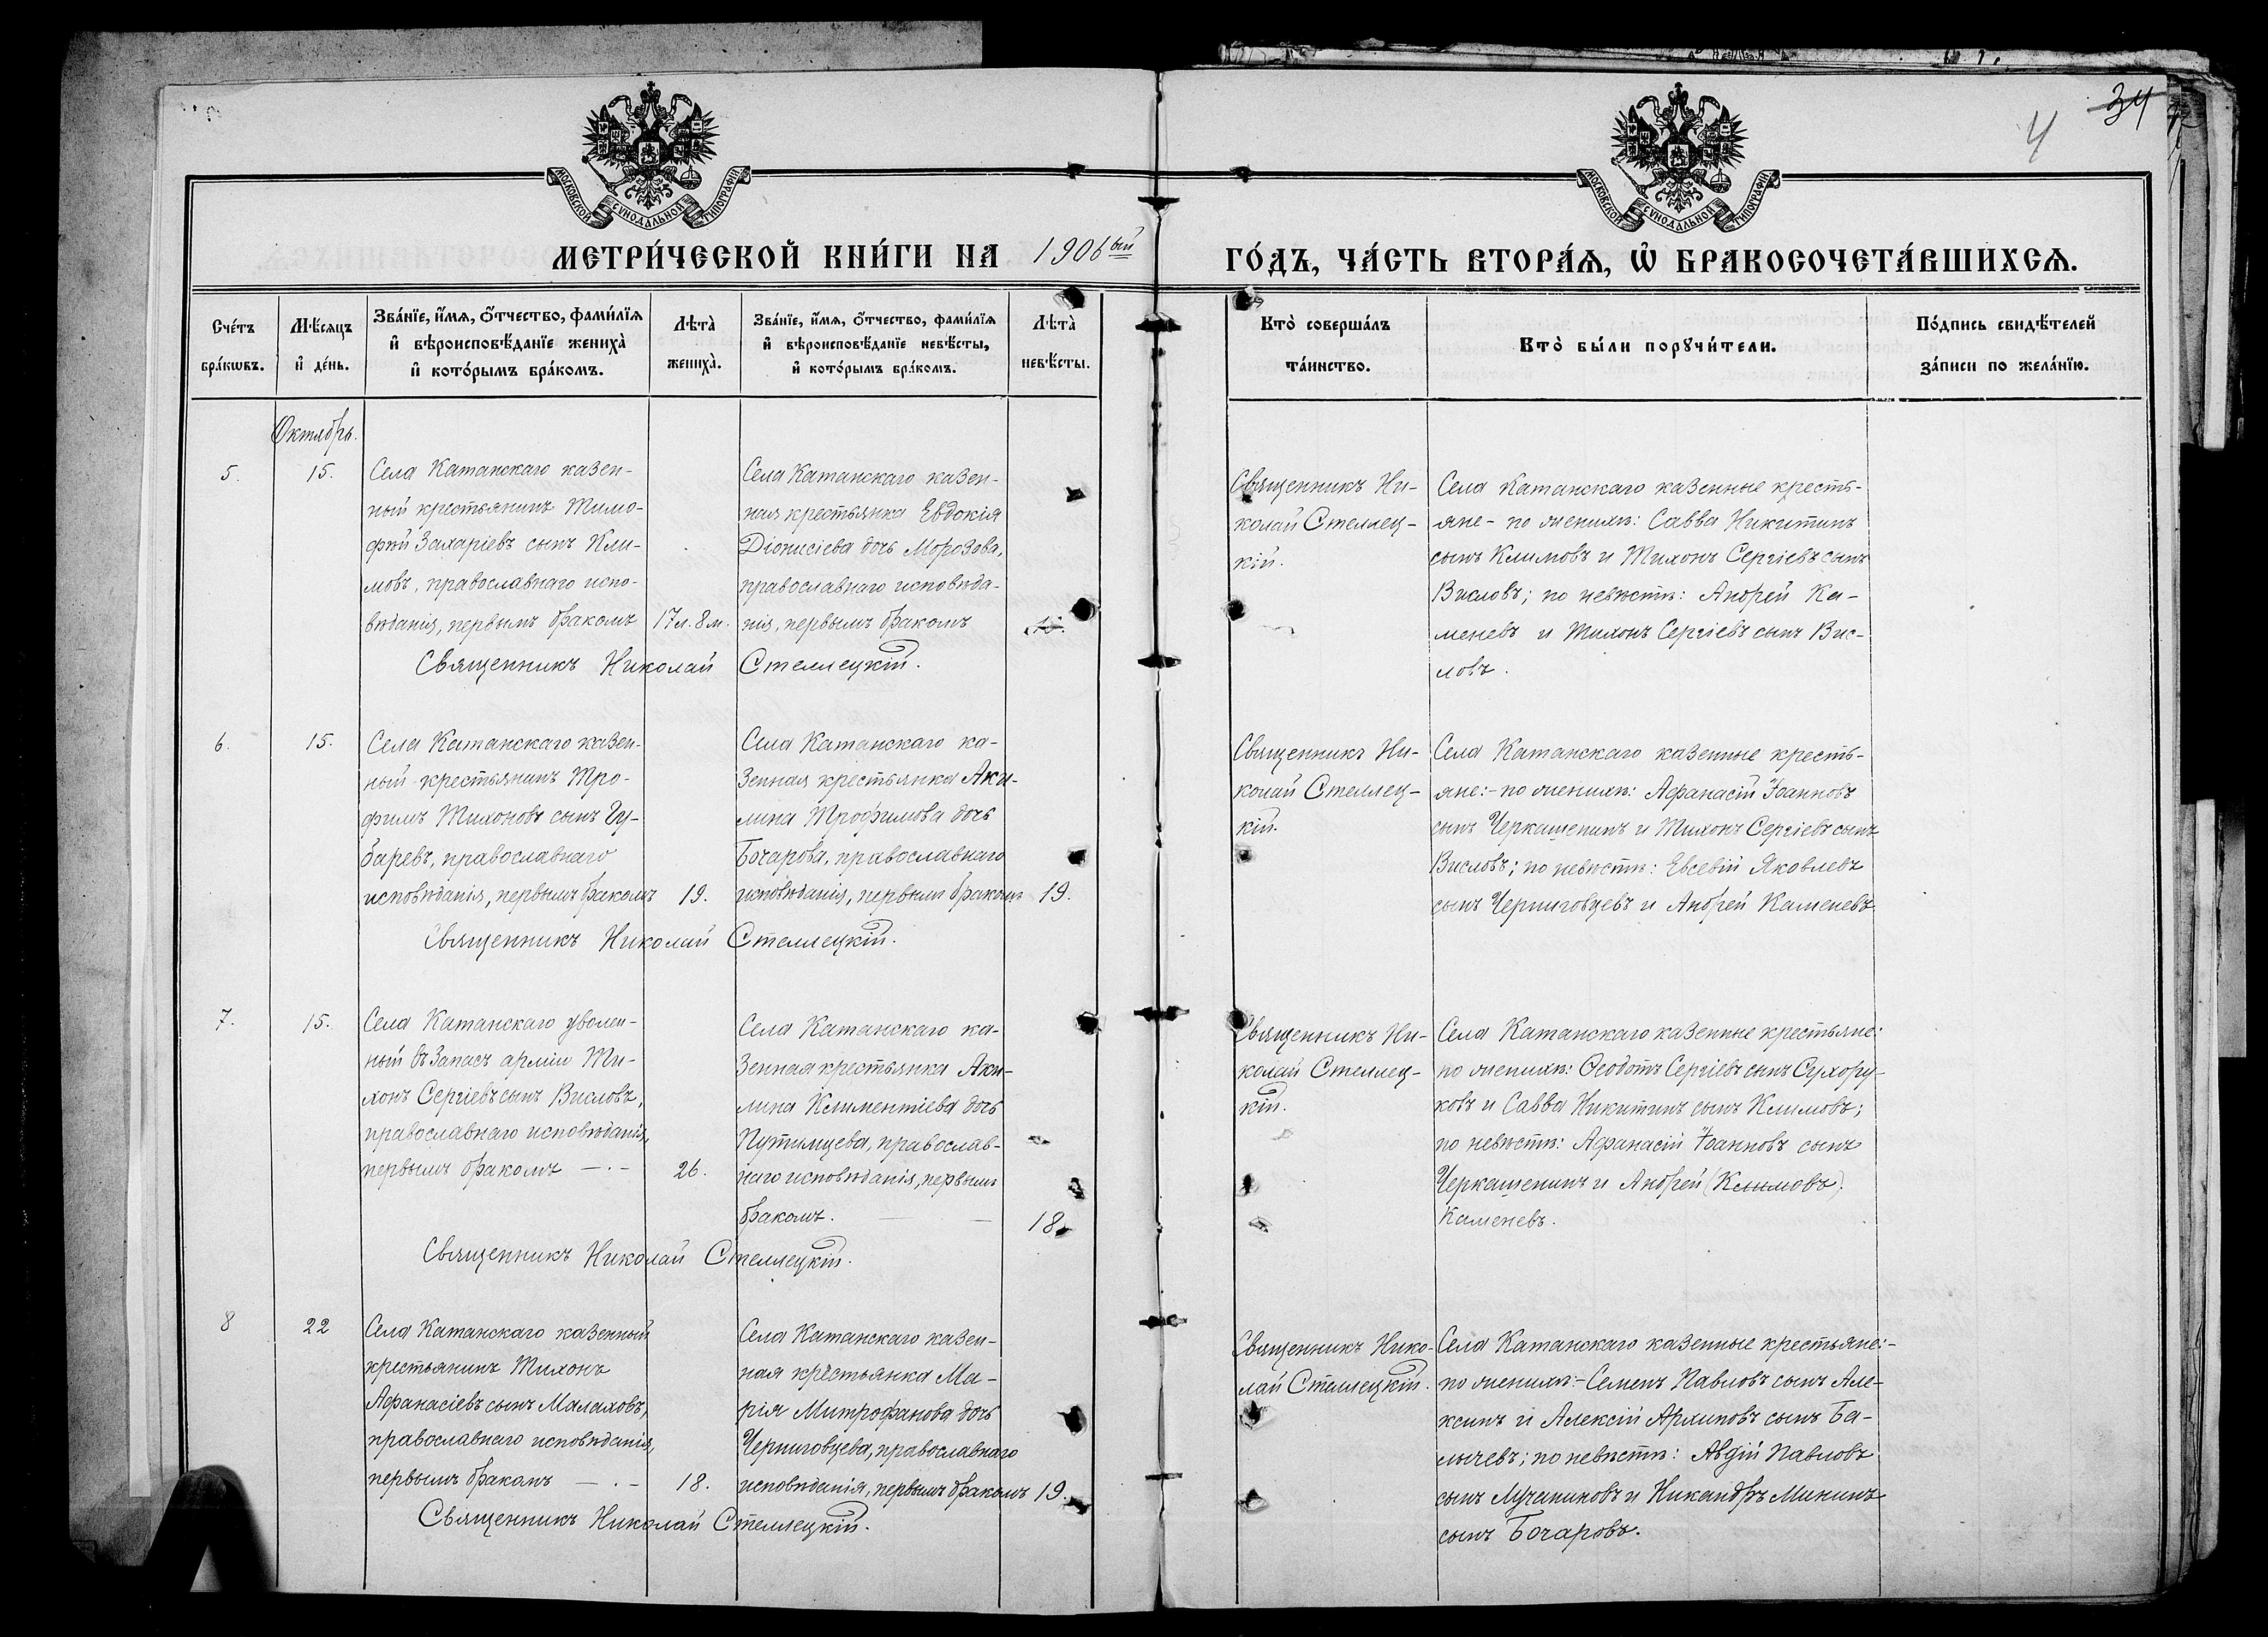 МОСКОВСКОЙ СѴНОДАЛЬНОЙ ТИПОГРАФІИ
МОСКОВСКОЙ СѴНОДАЛЬНОЙ ТИПОГРАФІИ
4
34
МЕТРИ́ЧЕСКОЙ КНИ́ГИ НА 1906 вый
ГО́ДЪ, ЧА́СТЬ ВТОРА́Ѧ, Ѿ БРАКОСОЧЕТА́ВШИХСѦ.
Сче́тъ
бра́кѡвъ.
Мѣ́сяцъ
и҆ де́нь.
Зва́нїе, и҆́мѧ, ѻ҆́тчество, фами́лїѧ
и҆ вѣроисповѣ́данїе жениха̀
и҆ кото́рымъ бра́комъ.
Лѣта̀
жениха̀.
Зва́нїе, и҆́мѧ, ѻ҆́тчество, фами́лїѧ
и҆ вѣроисповѣ́данїе невѣ́сты,
и҆ кото́рымъ бра́комъ.
Лѣта̀
невѣ́сты.
Кто̀ соверша́лъ
та́инство.
Кто̀ бы́ли порꙋчи́тели.
По́дпись свидѣ́телей
за́писи по жела́нїю.
Октябрь.
5.
15.
Села Катанскаго казен-
ный крестьянинъ Тимо-
фей Захаріевъ сынъ Кли-
мовъ, православнаго испо-
вѣданія, первымъ бракомъ
17 л. 8 м.
Села Катанскаго казен-
ная крестьянка Евдокія
Діонисіева дочь Морозова,
православнаго исповѣда-
нія, первымъ бракомъ
Священникъ Николай Стеллецкій.
Священникъ Ни-
колай Стеллец-
кій.
Села Катанскаго казенные кресть-
яне - по женихѣ: Савва Никитинъ
сынъ Климовъ и Тихонъ Сергіевъ сынъ
Висловъ; по невѣстѣ: Андрей Ка-
меневъ и Тихонъ Сергіевъ сынъ Вис-
ловъ.
6.
15.
Села Катанскаго казен-
ный крестьянинъ Тро-
фимъ Тихоновъ сынъ Гу-
баревъ, православнаго
исповѣданія, первымъ бракомъ
19.
Села Катанскаго ка-
зенная крестьянка Аки-
лина Трофимова дочь
Бочарова, православнаго
исповѣданія, первымъ бракомъ
19.
Священникъ Николай Стеллецкій.
Священникъ Ни-
колай Стеллец-
кій.
Села Катанскаго казенные кресть-
яне: - по женихѣ: Афанасій Іоанновъ
сынъ Черкашенинъ и Тихонъ Сергіевъ сынъ
Висловъ; по невѣстѣ: Евсевій Яковлевъ
сынъ Черниговцевъ и Андрей Каменевъ
7.
15.
Села Катанскаго уволен-
ный въ запасъ арміи Ти-
хонъ Сергіевъ сынъ Висловъ,
православнаго исповѣданія,
первымъ бракомъ — . —
26.
Села Катанскаго ка-
зенная крестьянка Аки-
лина Климентіева дочь
Путимцева, православ-
наго исповѣданія, первымъ
бракомъ. — —
18.
Священникъ Николай Стеллецкій.
Священникъ Ни-
колай Стеллец-
кій.
Села Катанскаго казенные крестьяне:
по женихѣ: Ѳеодотъ Сергіевъ сынъ Сухору-
ковъ и Савва Никитинъ сынъ Климовъ;
по невѣстѣ: Афанасій Іоанновъ сынъ
Черкашенинъ и Андрей (Климовъ).
Каменевъ.
8
22
Села Катанскаго казенный
крестьянинъ Тихонъ
Афанасіевъ сынъ Малаховъ,
православнаго исповѣданія,
первымъ бракомъ — . —
18.
Села Катанскаго казен-
ная крестьянка Ма-
рія Митрофанова дочь
Черниговцева, православнаго
исповѣданія, первымъ бракомъ
19.
Священникъ Николай Стеллецкій.
Священникъ Нико-
лай Стеллецкій.
Села Катанскаго казенные крестьяне: -
по женихѣ: - Семенъ Павловъ сынъ Але-
ксинъ и Алексій сынъ Ба-
лычевъ; по невѣстѣ: Авдій Павловъ
сынъ Лучаниновъ и Никандръ Мининъ
сынъ Бочаровъ.